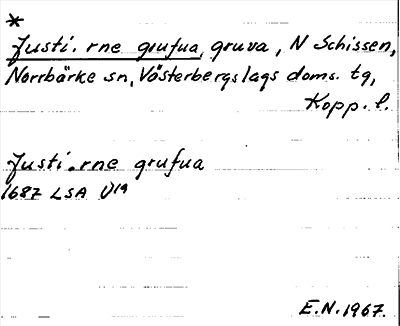 *
Justi. rne grufua, gruva, N Schissen,
Norrbärke sn, Västerbergslags doms. tg,
Kopp. l.
Justi.rne grufua
1687 LSA U19
E.N. 1967.